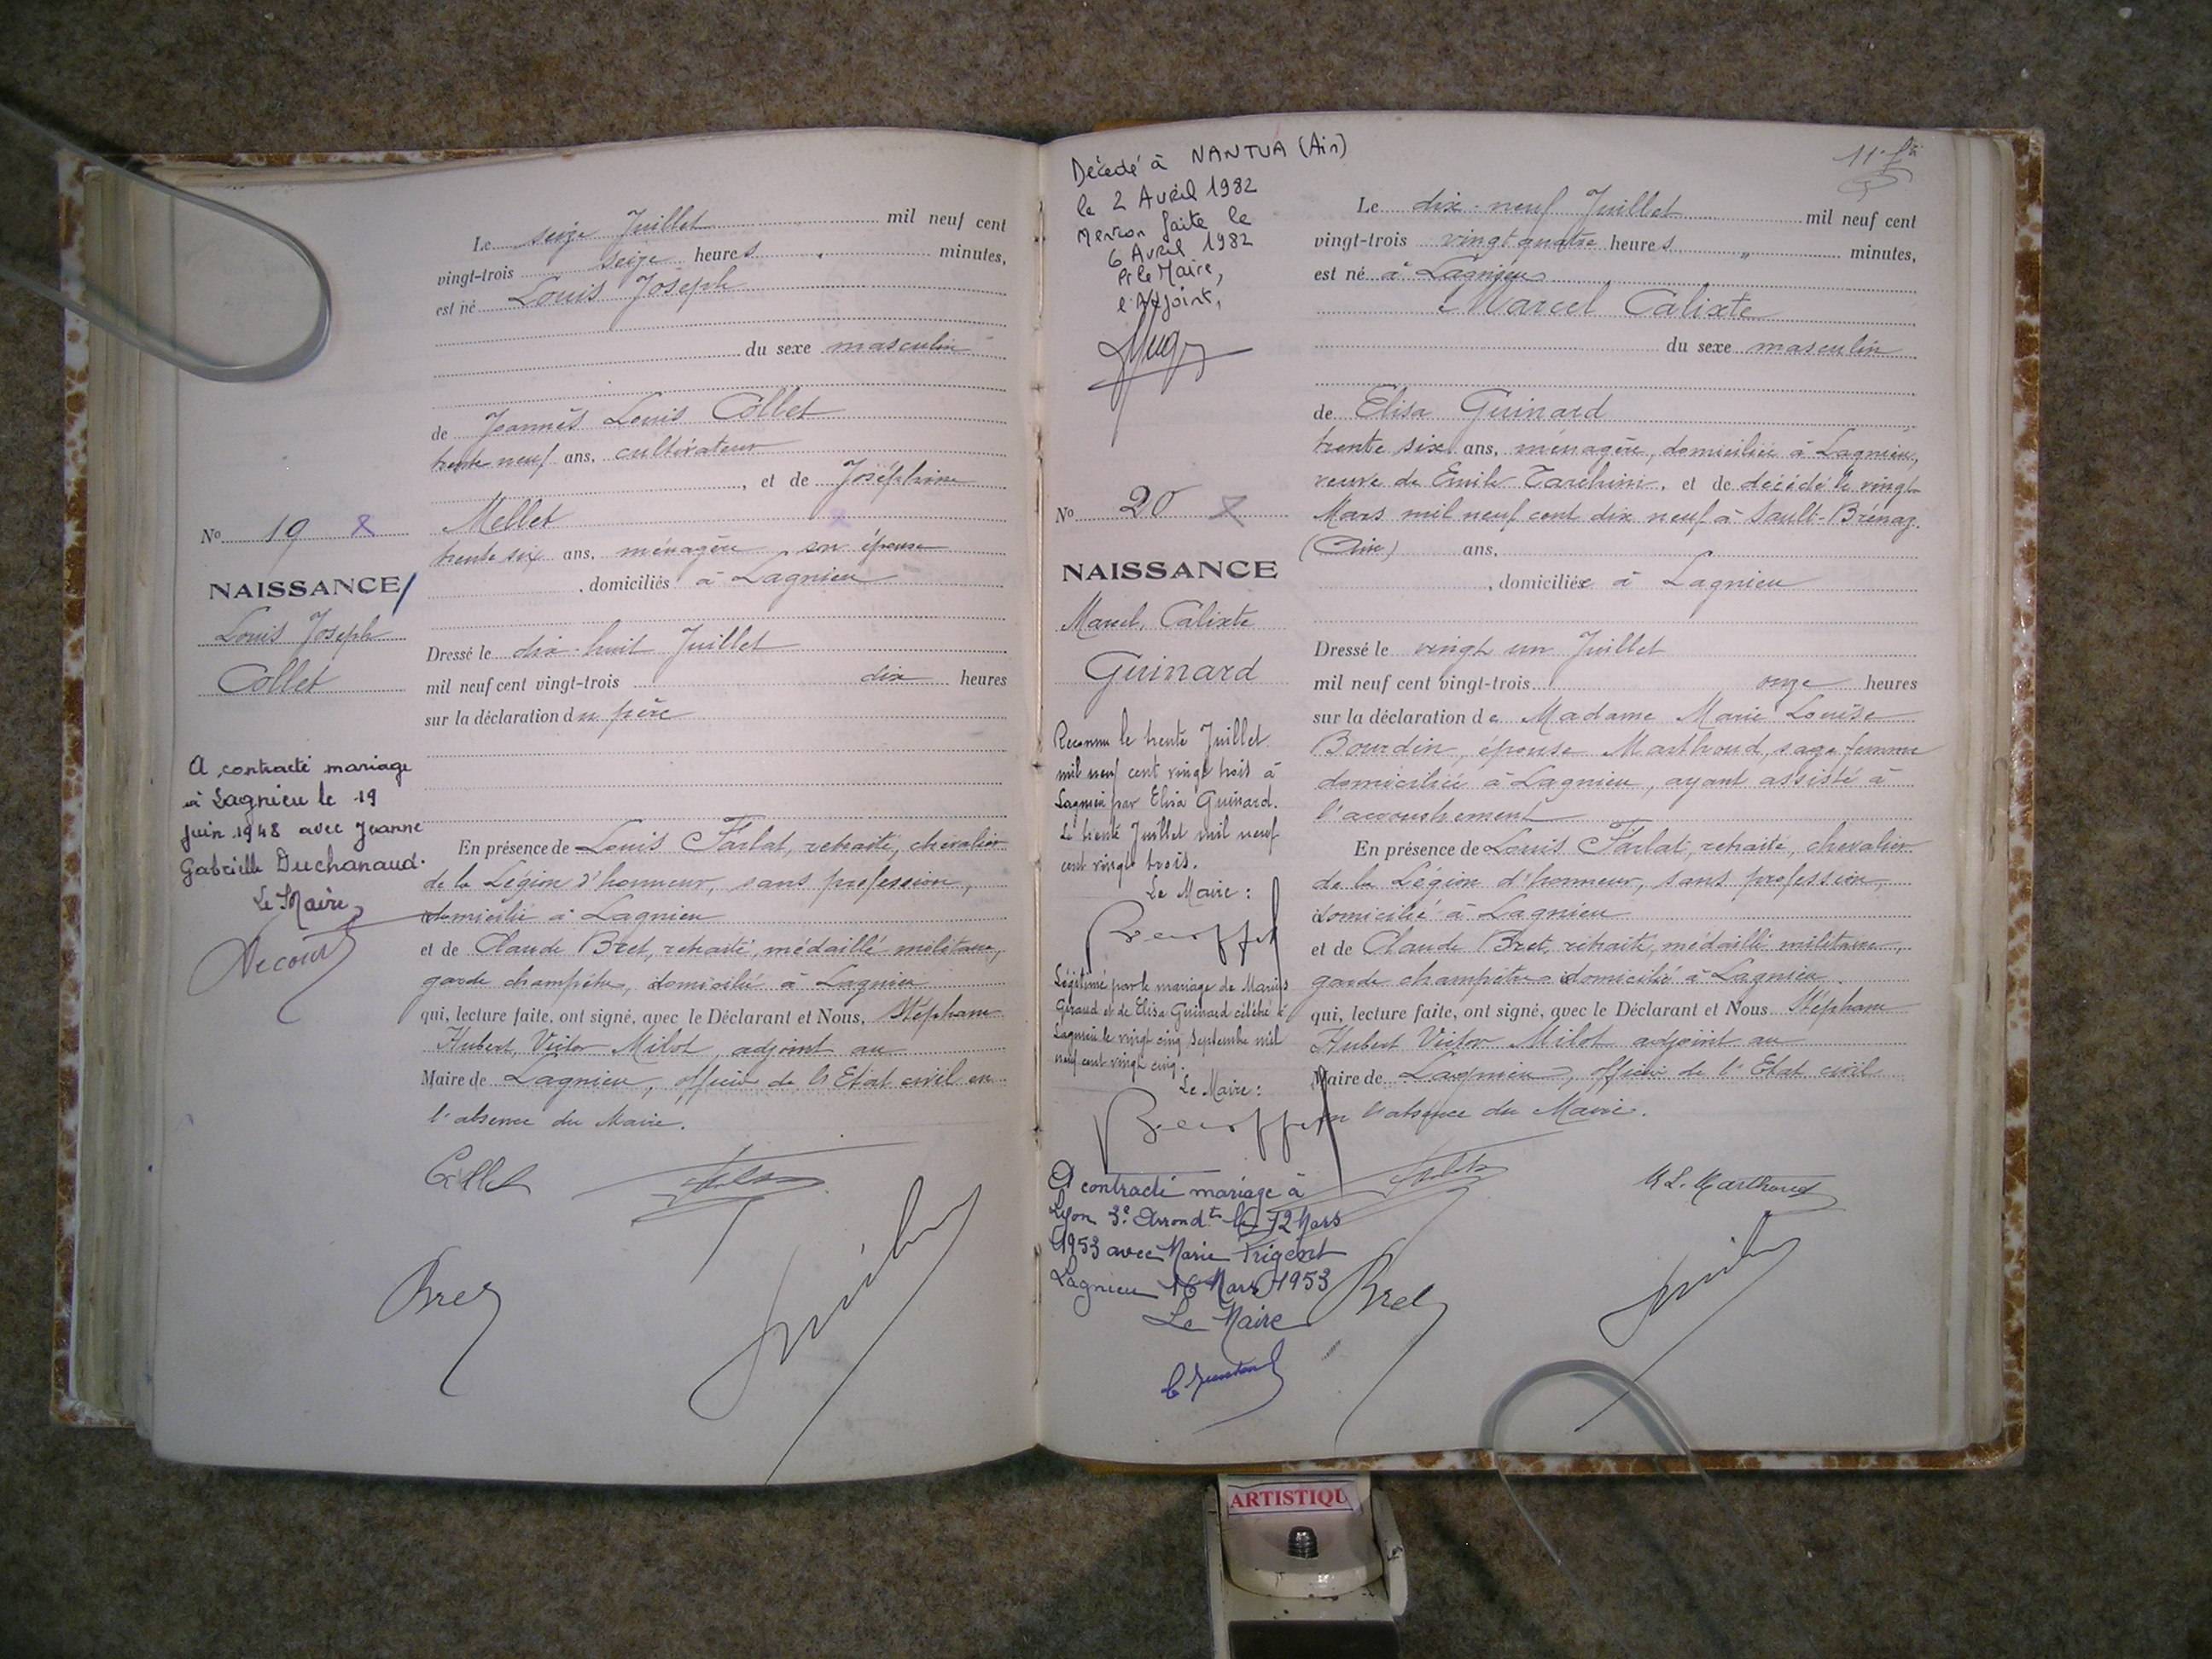 Le seize Juillet mil neuf cent
vingt-trois seize heures minutes,
est né Louis Joseph
du sexe masculin
de Joannès Louis Collet
trente neuf ans, cultivateur
, et de Joséphine
Mellet
trente six ans, ménagère son épouse
, domiciliés à Lagnieu
Dressé le dix-huit Juillet
mil neuf cent vingt-trois dix heures
sur la déclaration du père
En présence de Louis Farlat, retraité, chevalier
de la Légion d'honneur, sans profession,
domicilié à Lagnieu
et de Claude Bret, retraité, médaillé militaire,
garde champêtre, domicilié à Lagnieu
qui, lecture faite, ont signé, avec le Déclarant et Nous, Stéphane
Hubert, Victor Milot, adjoint au
Maire de Lagnieu, officier de l'Etat civil en
l'absence du Maire.
Collet
Bret
No 19
NAISSANCE
Louis Joseph
Collet
A contracté mariage
à Lagnieu le 19
juin 1948 avec Jeanne
Gabrielle Duchanaud.
Le Maire,
Décédé à NANTUA (Ain)
le 2 Avril 1982
Mention faite le
6 Avril 1982
Pr le Maire,
l'Adjoint,
No 20
NAISSANCE
Marcel, Calixte
Guinard
Reconnu le trente Juillet
mil neuf cent vingt trois à
Lagnieu par Elisa Guinard.
Le trente Juillet mil neuf
cent vingt trois.
Le Maire :
Légitimé par le mariage de Marius
Géraud et de Elisa Guinard célébré à
Lagnieu le vingt cinq Septembre mil
neuf cent vingt cinq.
Le Maire :
A contracté mariage à
Lyon 3e Arrondt le 12 Mars
1953 avec Marie Trigent
Lagnieu 16 Mars 1953
Le Maire
Le dix-neuf Juillet mil neuf cent
vingt-trois vingt quatre heures " minutes,
est né à Lagnieu
Marcel Calixte
du sexe masculin
de Elisa Guinard
trente six ans, ménagère, domiciliée à Lagnieu,
veuve de Emile Tarchini, et de décédé le vingt
Mars mil neuf cent dix neuf à Sault-Brénaz
(Ain) ans,
, domiciliée à Lagnieu
Dressé le vingt un Juillet
mil neuf cent vingt-trois onze heures
sur la déclaration de Madame Marie Louise
Bourdin, épouse Marthoud, sage femme
domiciliée à Lagnieu, ayant assisté à
l'accouchement
En présence de Louis Farlat, retraité, chevalier
de la Légion d'honneur, sans profession,
domicilié à Lagnieu
et de Claude Bret, retraité, médaillé militaire,
garde champêtre domicilié à Lagnieu
qui, lecture faite, ont signé, avec le Déclarant et Nous Stéphane
Hubert Victor Milot adjoint au
Maire de Lagnieu, officier de l'Etat civil
en l'absence du Maire.
M L. Marthoud
Bret
ARTISTIQU